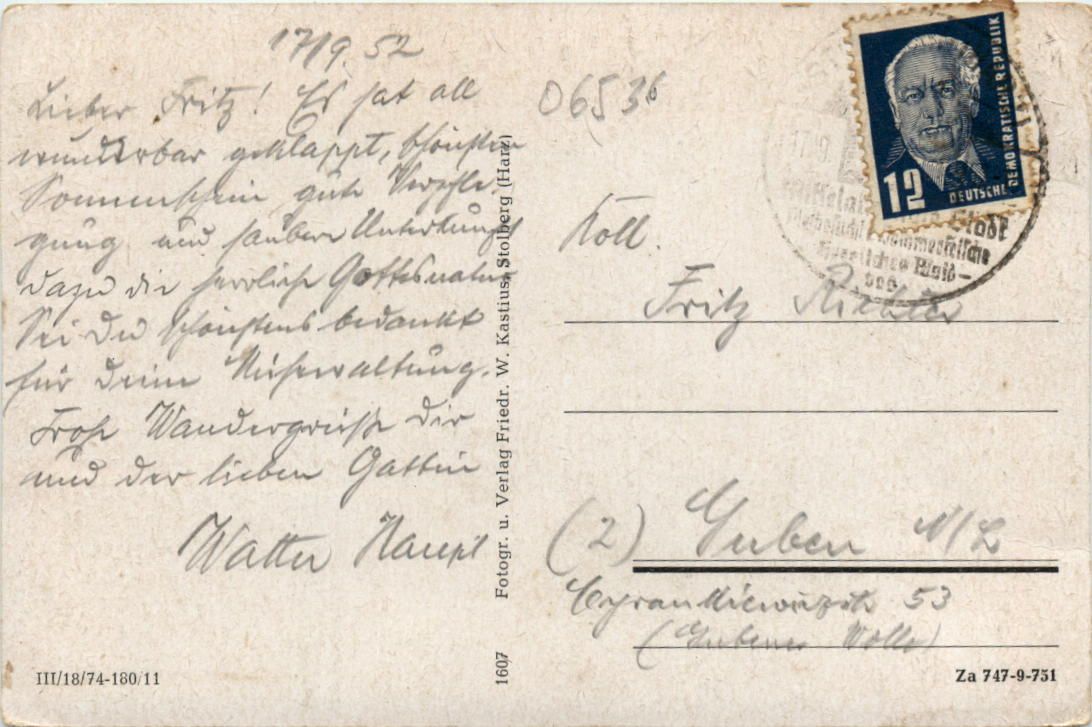 17/9. 52
Lieber Fritz! Es hat all
wunderbar geklappt, schönsten
Sonnenschein gute Verpfle
gung und saubere Unterkunft
dazu die herrliche Gottesnatur
Sei Du schönstens bedankt
für Deine Mühewaltung.
Frohe Wandergrüße Dir
und der lieben Gattin
Walter
III/18/74-180/11
1607 Fotogr. u. Verlag Friedr. W. Kastius, Stolberg (Harz)
06536
12
DEUTSCHE DEMOKRATISCHE REPUBLIK
17.9.
Stadt
Koll.
Fritz Richter
(2) Guben N/L
53
(Gubener Wolle)
Za 747-9-751